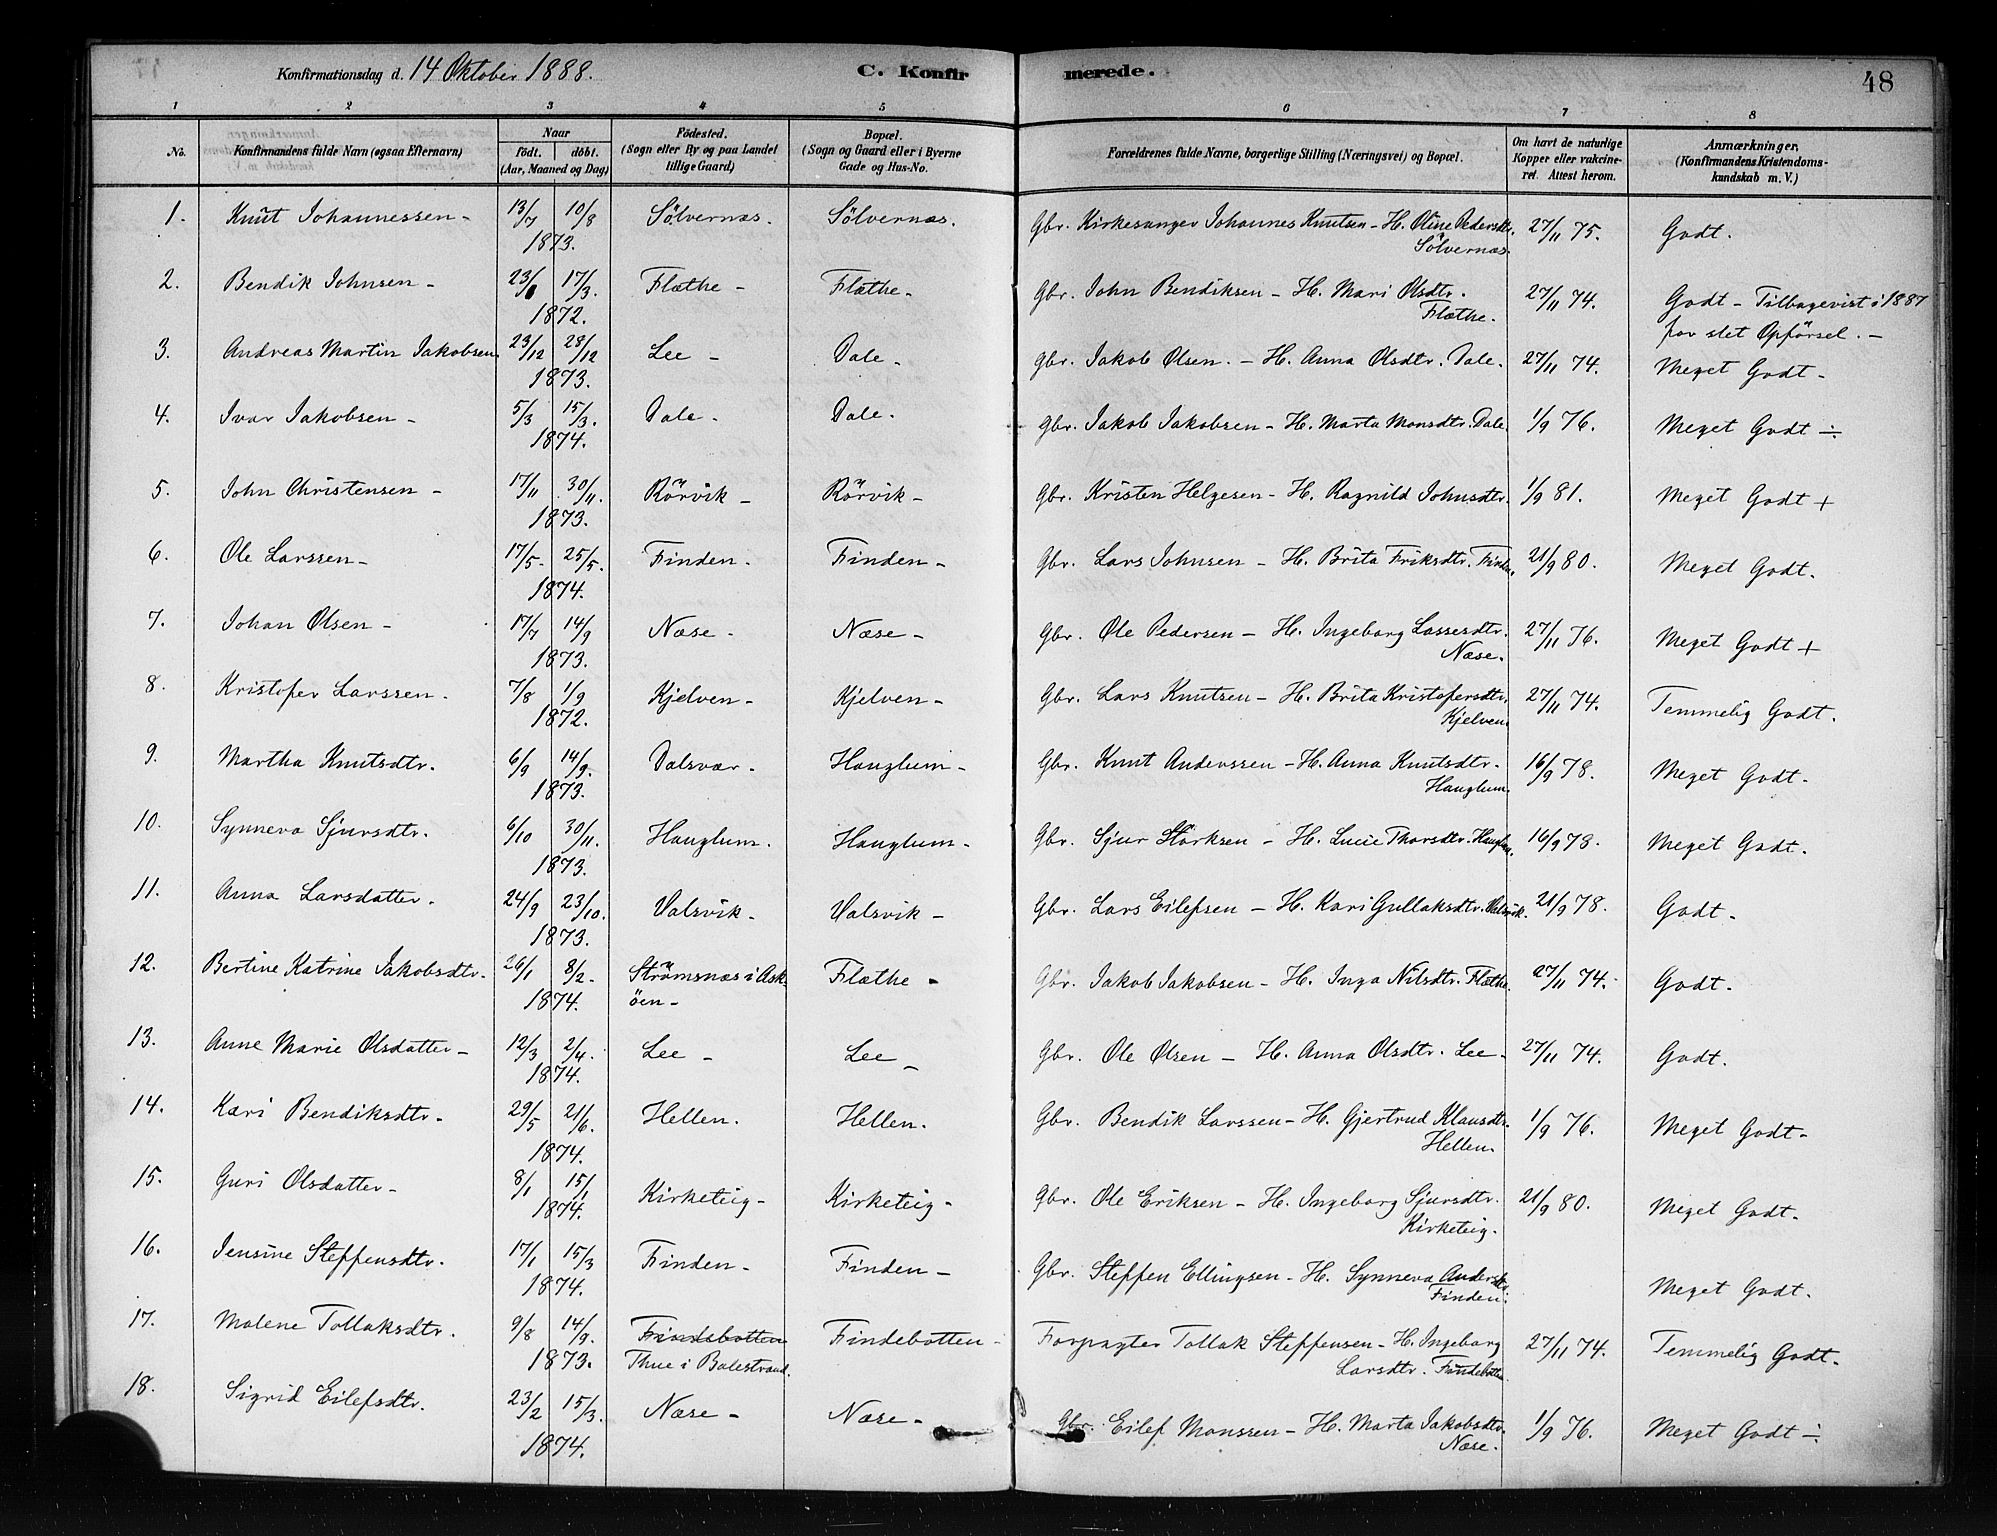 Konfirmationsdag d. 14 Oktober 1888. C. Konfirmerede. 48
1 2 3 4 5 6 7 8
No. Konfirmandens fulde Navn (ogsaa Efternavn) Naar födt. döbt. (Aar, Maaned og Dag) Födested. (Sogn eller By og paa Landet tillige Gaard) Bopæl. (Sogn og Gaard eller i Byerne Gade og Hus-No. Forældrenes fulde Navne, borgerlige Stilling (Næringsvei) og Bopæl. Om havt de naturlige Kopper eller vakcineret. Attest herom. Anmærkninger, (Konfirmandens Kristendomskundskab m. V.)
1. Knut Johannessen - 13/7 10/8 1873. Sölvernæs. Sölvernæs. Gbr. Kirkesanger Johannes Knutsen - H. Oline Pedersdtr. Sölvernæs. 27/11 75. Godt.
2. Bendik Johnsen - 23/ 17/3. 1872. Flæthe - Flæthe - Gbr. John Bendiksen - H. Mari Olsdtr. Flæthe. 27/11 74. Godt - Tilbagevist i 1887 for slet Opförsel. -
3. Andreas Martin Jakobsen 23/12 28/12 1873. Lee - Dale - Gbr. Jakob Olsen. - H. Anna Olsdtr. Dale. 27/11 74. Meget Godt -
4. Ivar Jakobsen - 5/3 15/3. 1874. Dale - Dale. Gbr. Jakob Jakobsen - H. Marta Monsdtr. Dale. 1/9 76. Meget Godt ÷
5. John Christensen - 17/11 30/11. 1873. Rörvik - Rörvik - Gbr. Kristen Helgesen - H. Ragnild Johnsdtr. 1/9 81. Meget Godt +
6. Ole Larssen - 17/5. 25/5. 1874. Finden. Finden - Gbr. Lars Johnsen - H. Brita Eriksdtr. Finden. 21/9 80. Meget Godt.
7. Johan Olsen - 17/7 14/9 1873. Næse - Næse - Gbr. Ole Pedersen - H. Ingeborg Lassesdtr. Næse. 27/11 76. Meget Godt +
8. Kristofer Larssen. 7/8 1/9 1872. Kjelven - Kjelven - Gbr. Lars Knutsen - H. Brita Kristofersdtr. Kjelven. 27/11 74. Temmelig Godt.
9. Martha Knutsdtr. 6/9 14/9. 1873. Dalsvær. Hauglum - Gbr. Knut Anderssen - H. Anna Knutsdtr. Hauglum. 16/9 78. Meget Godt.
10. Synneva Sjursdtr. 6/10 30/11. 1873. Hauglum. Hauglum - Gbr. Sjur Störksen - H. Lucie Thorsdtr. Hauglum. 16/9 78. Meget Godt.
11. Anna Larsdatter. 24/9 23/10. 1873. Valsvik. Valsvik - Gbr. Lars Eilefsen - H. Kari Gullaksdtr. Valsvik. 21/9 78. Godt -
12. Bertine Katrine Jakobsdtr. 26/1 8/2. 1874. Strömsnæs i Asköen - Flæthe - Gbr. Jakob Jakobsen - H. Inga Nilsdtr. Flæthe. 27/11 74. Godt.
13. Anne Marie Olsdatter - 12/3 2/4. 1874. Lee - Lee - Gbr. Ole Olsen - H. Anna Olsdtr. Lee - 27/11 74. Godt.
14. Kari Bendiksdtr - 29/5 21/6. 1874. Hellen. Hellen. Gbr. Bendik Larssen - H. Gjertrud Klausdtr. Hellen. 1/9 76. Meget Godt -
15. Guri Olsdatter - 8/1 15/1 1874. Kirketeig - Kirketeig - Gbr. Ole Eriksen - H. Ingeborg Sjursdtr. Kirketeig. 21/9 80. Meget Godt.
16. Jensine Steffensdtr. 17/1 15/3 1874. Finden - Finden - Gbr. Steffen Ellingsen - H. Synneva Andersdtr. Finden. Meget Godt.
17. Malene Tollaksdtr. 9/8 14/9. 1873. Findebotten Thue i Balestrand. Findebotten - Forpagter Tollak Steffensen - H. Ingeborg Larsdtr. Findebotten 27/11 74. Temmelig Godt.
18. Sigrid Eilefsdtr. 23/2 15/3. 1874. Næse - Næse - Gbr. Eilef Monssen - H. Marta Jakobsdtr. Næse. 1/9 76. Meget Godt ÷